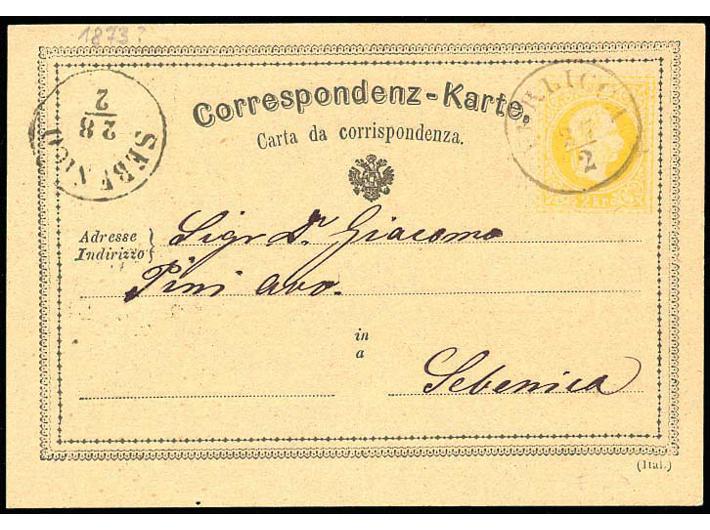 1873?
Correspondenz-Karte.
Carta da corrispondenza.
SEBENICO
28
2
2
2 Kr.
Adresse
Indirizzo
Sigr Dr. Giacomo
Pini avo.
in
a
Sebenico
(Ital.)